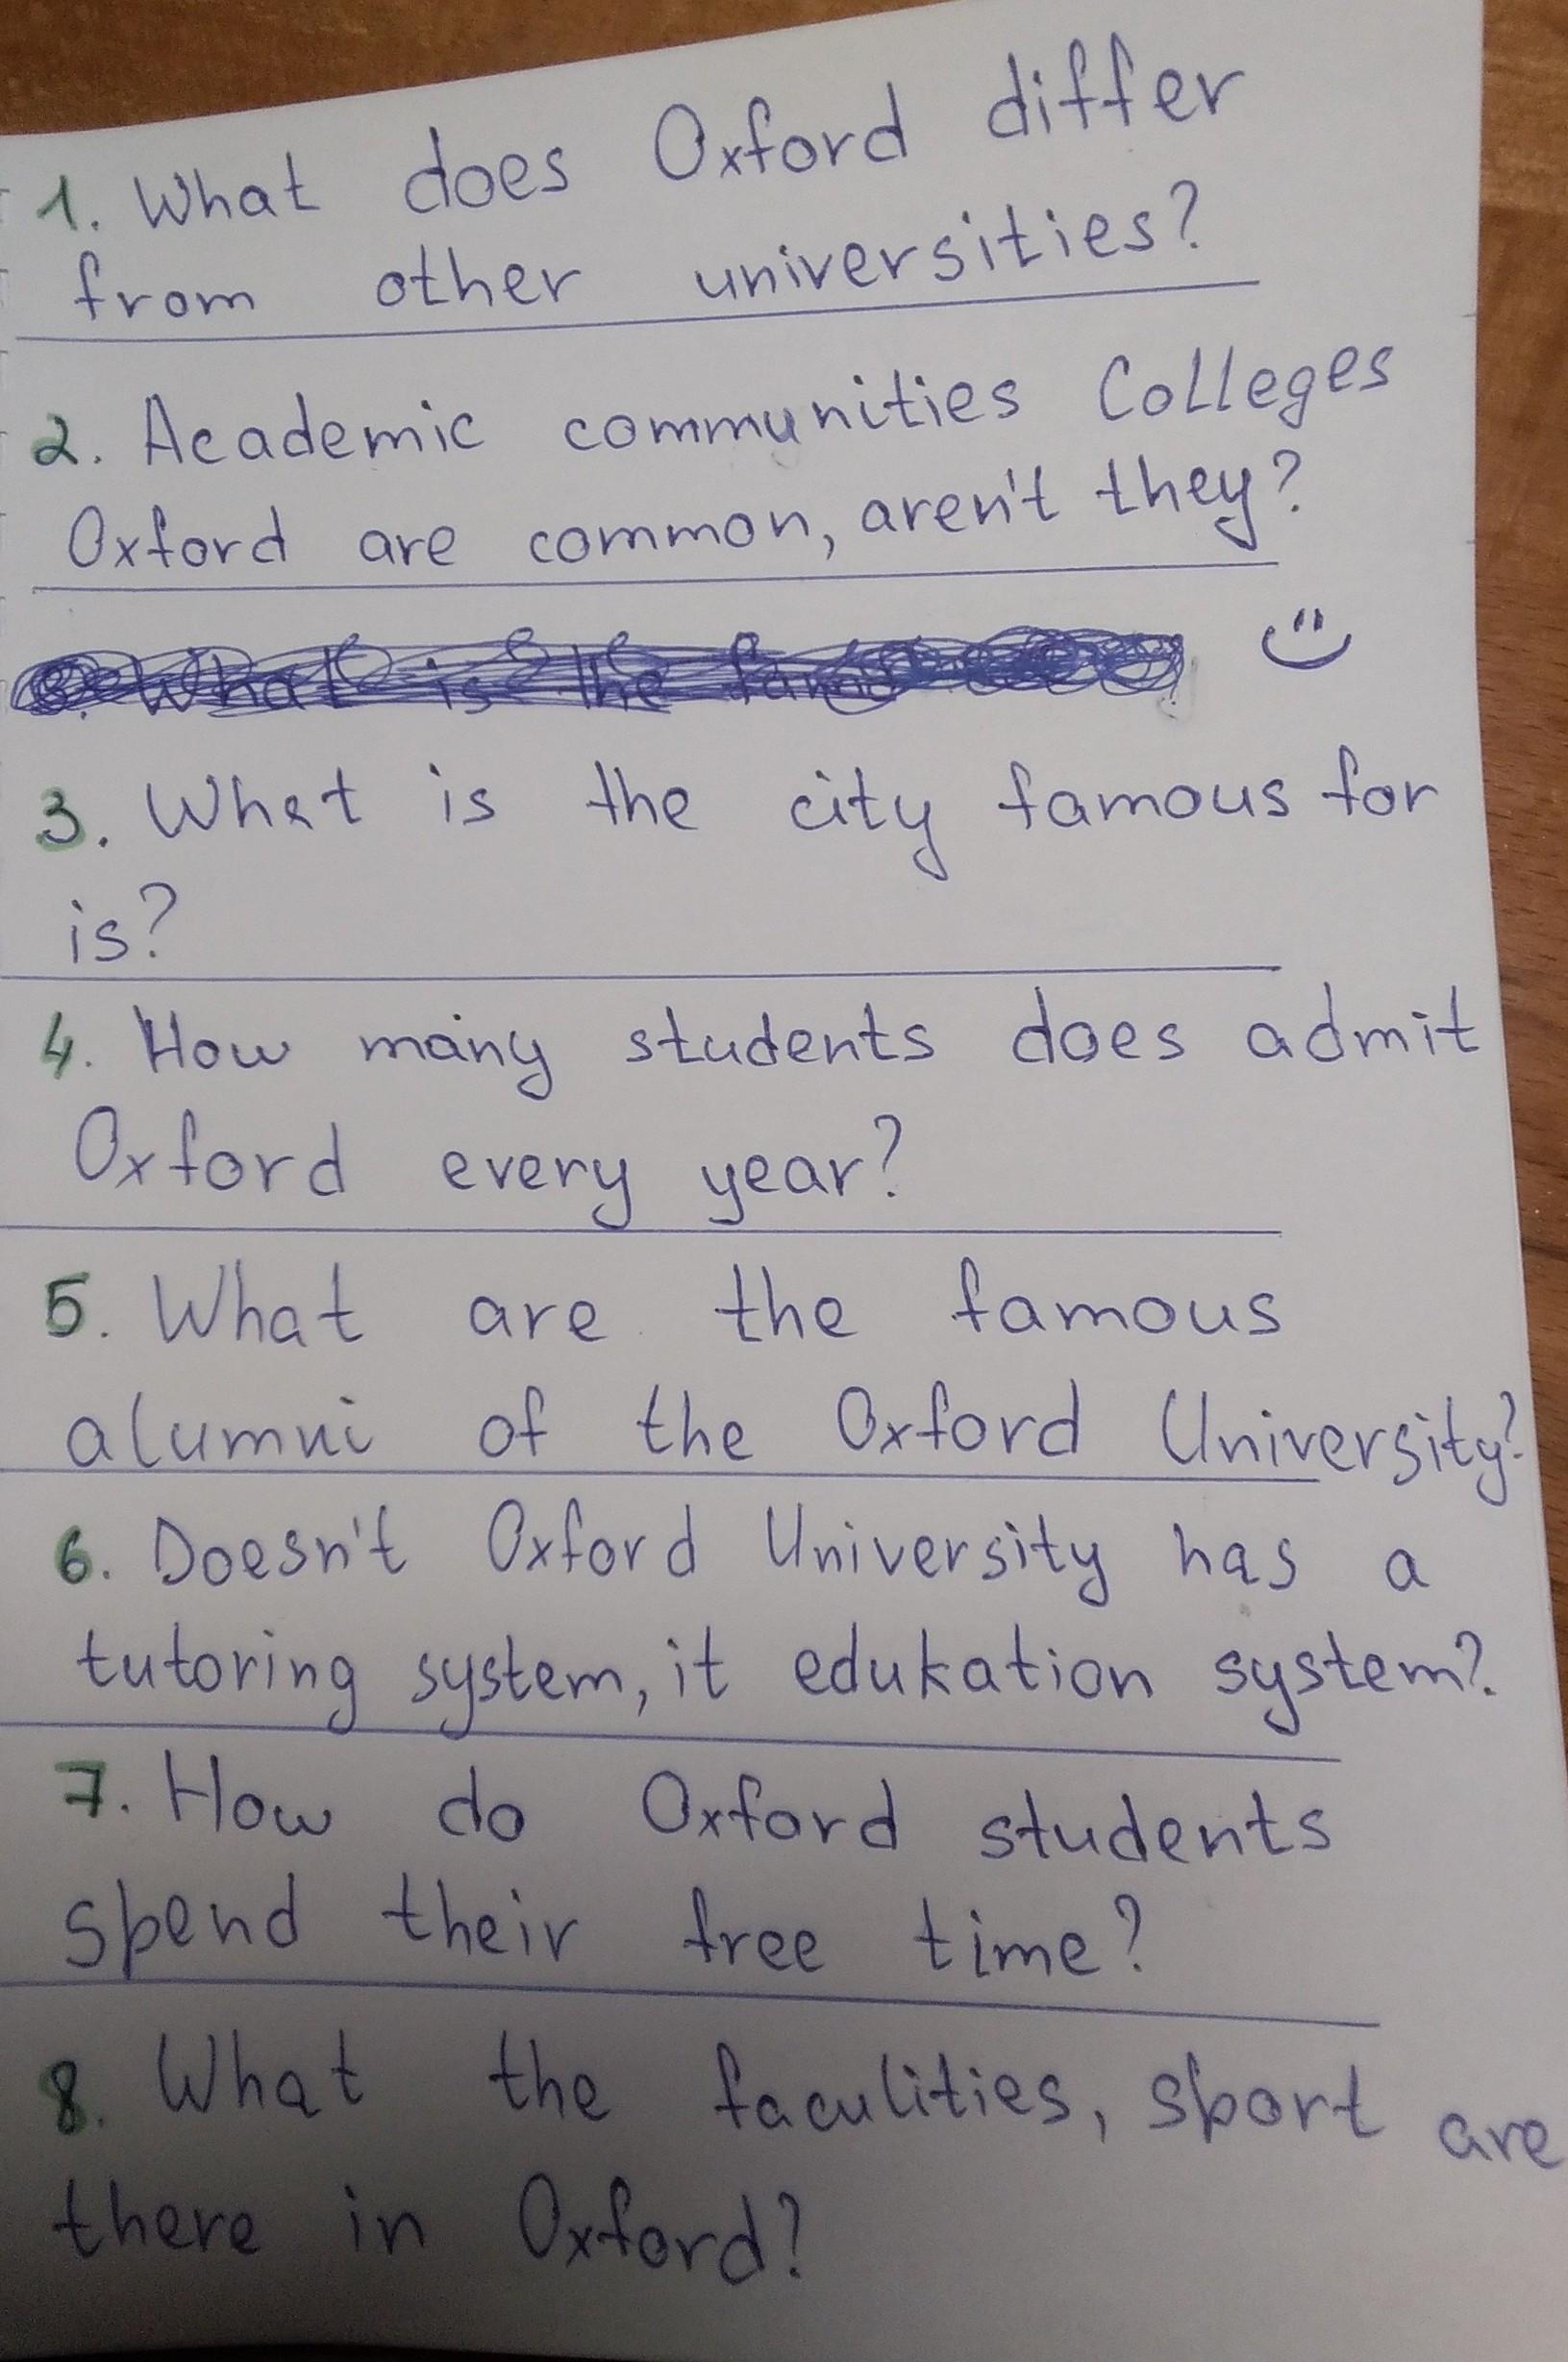 1. What does Oxford differ
from other universities?
2. Academic communities Colleges
Oxford are common, aren't they?
3. What is the city famous for
is?
4. How many students does admit
Oxford every year?
5. What are the famous
alumni of the Oxford University?
6. Doesn't Oxford University has a
tutoring system, it edukation system?
7. How do Oxford students
spend their free time?
8. What the faculities, sport are
there in Oxford?